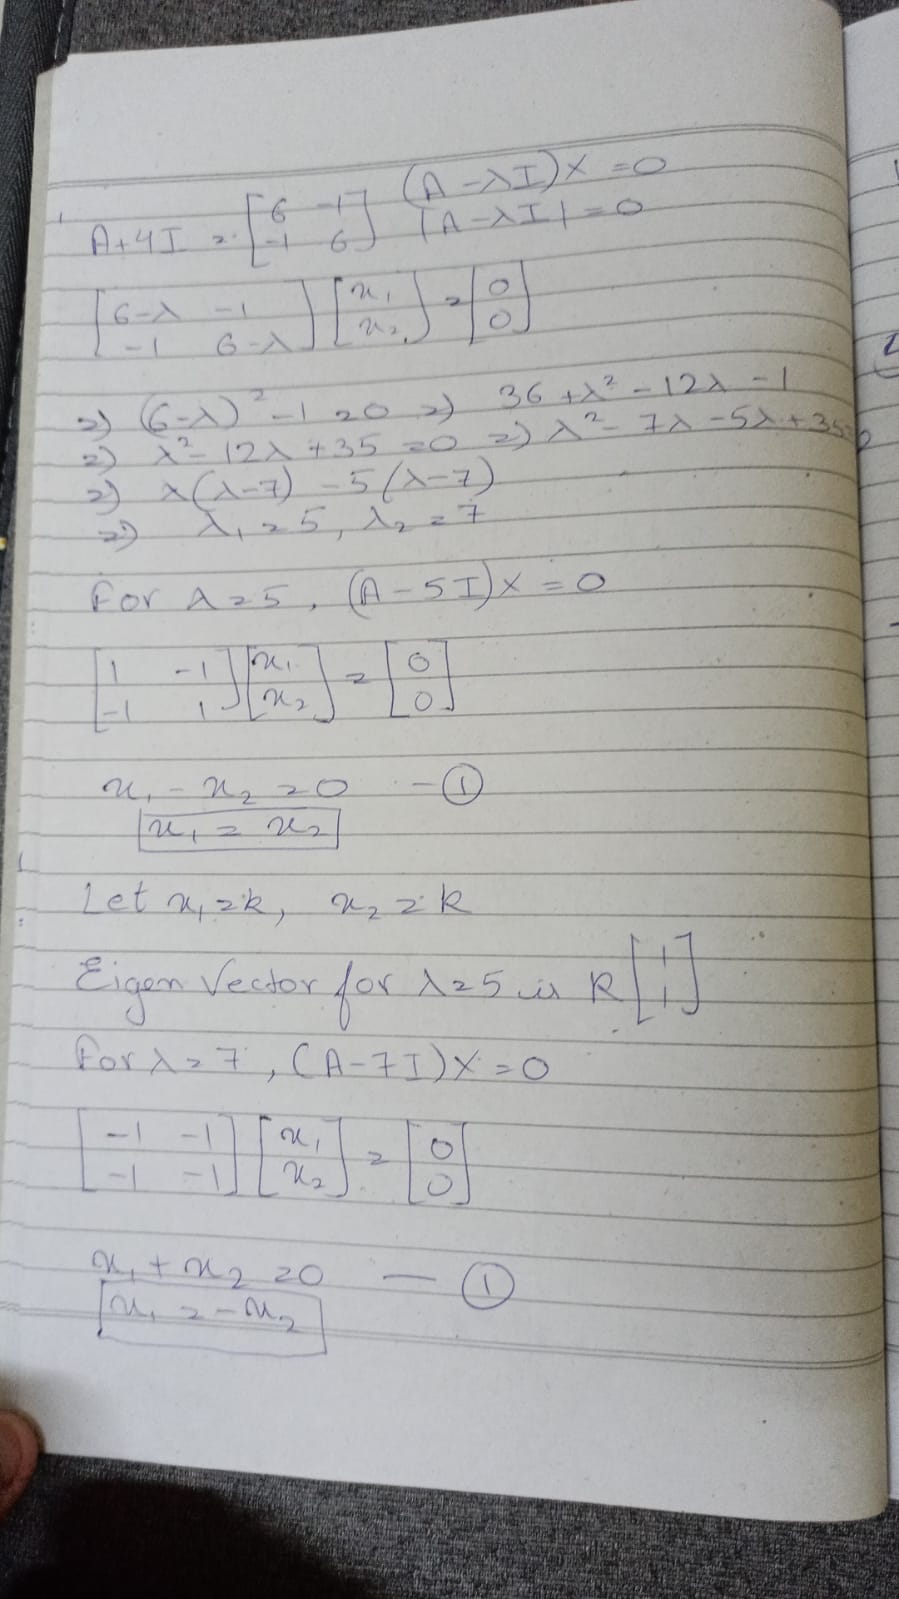 (A-λI)X=0
A+4I = [6 -1; -1 6] |A-λI|=0
[6-λ -1; -1 6-λ] [x₁; x₂] = [0; 0]
⇒ (6-λ)²-1=0 ⇒ 36+λ²-12λ-1
⇒ λ²-12λ+35=0 ⇒ λ²-7λ-5λ+35=0
⇒ λ(λ-7) -5(λ-7)
⇒ λ₁=5, λ₂=7
For λ=5, (A-5I)X=0
[1 -1; -1 1] [x₁; x₂] = [0; 0]
x₁-x₂=0 -①
x₁=x₂
Let x₁=k, x₂=k
Eigen Vector for λ=5 is k[1; 1]
For λ=7, (A-7I)X=0
[-1 -1; -1 -1] [x₁; x₂] = [0; 0]
x₁+x₂=0 -①
x₁=-x₂